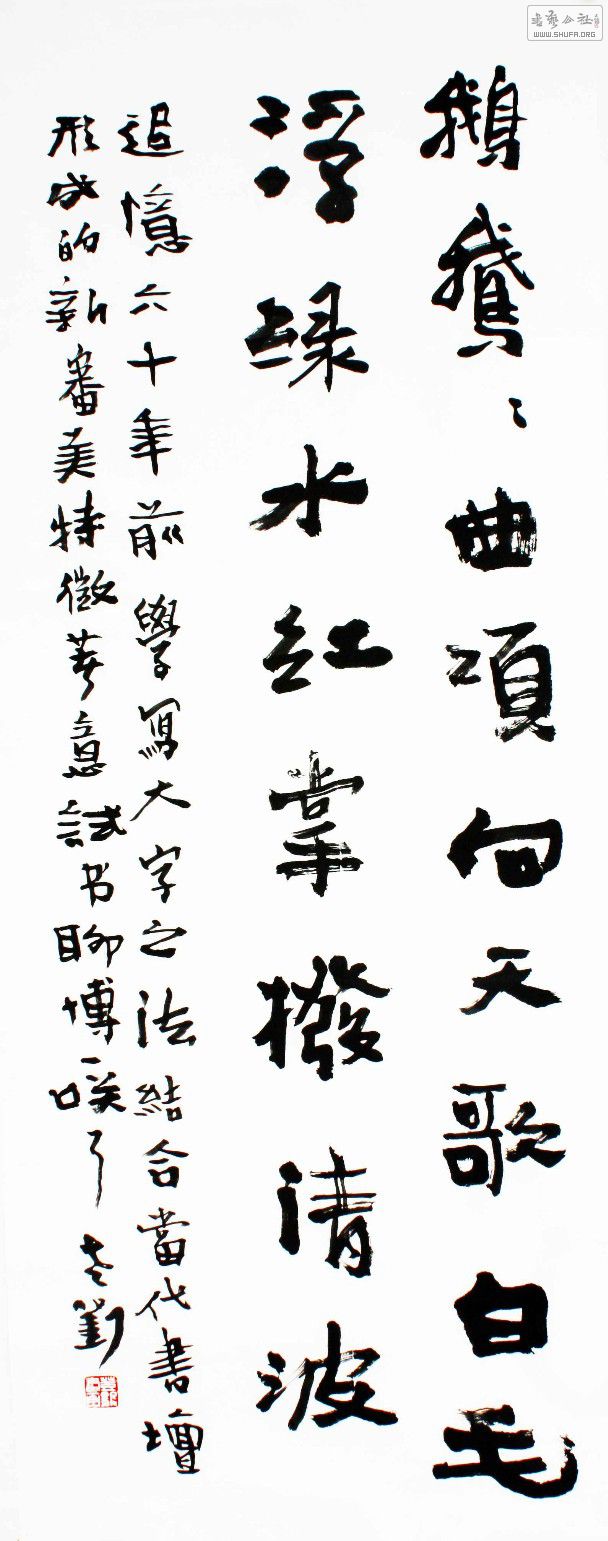 鹅鹅〻曲项向天歌白毛
浮绿水红掌撥清波
追憶六十年前學寫大字之法結合當代書壇
形成的新審美特徵著意試书聊博一咲了老劉
WWW.SHUFA.ORG